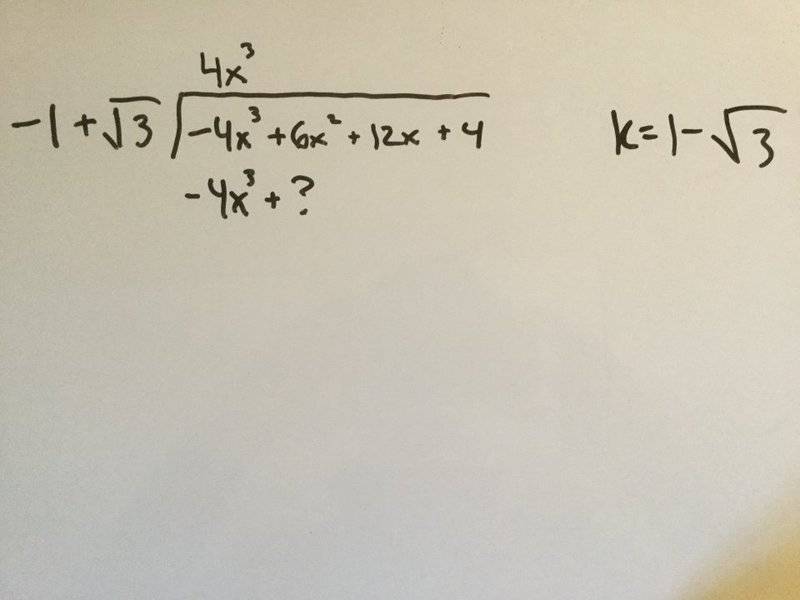 4x³
-1+√3 √-4x³+6x²+12x+4 k=1-√3
-4x³+?